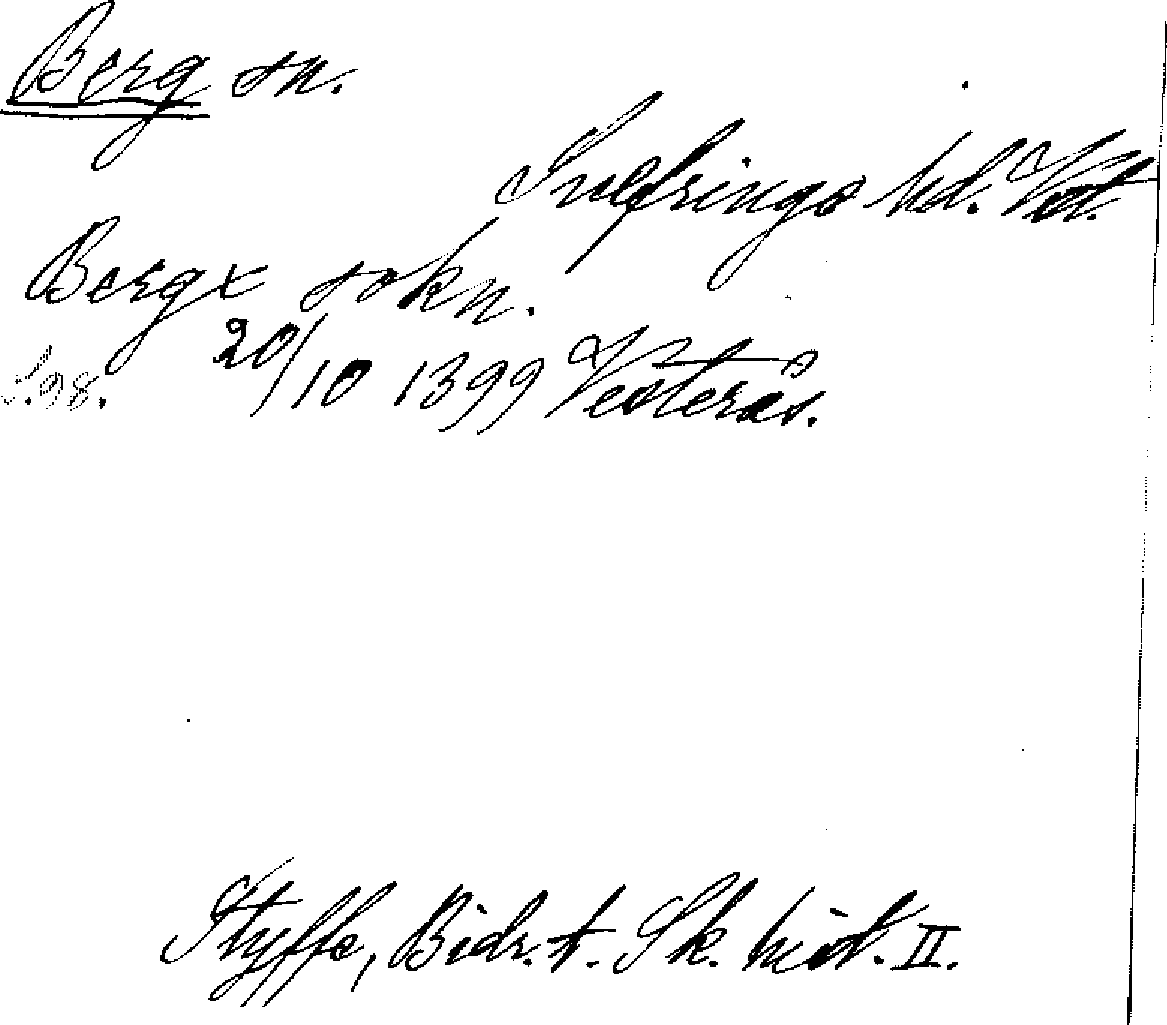 Berg sn.
Snefringe hd. Vstm.
Bergx sokn.
S. 98. 20/10 1399 Vesterås.
Styffe, Bidr. t. Sk. hist. II.